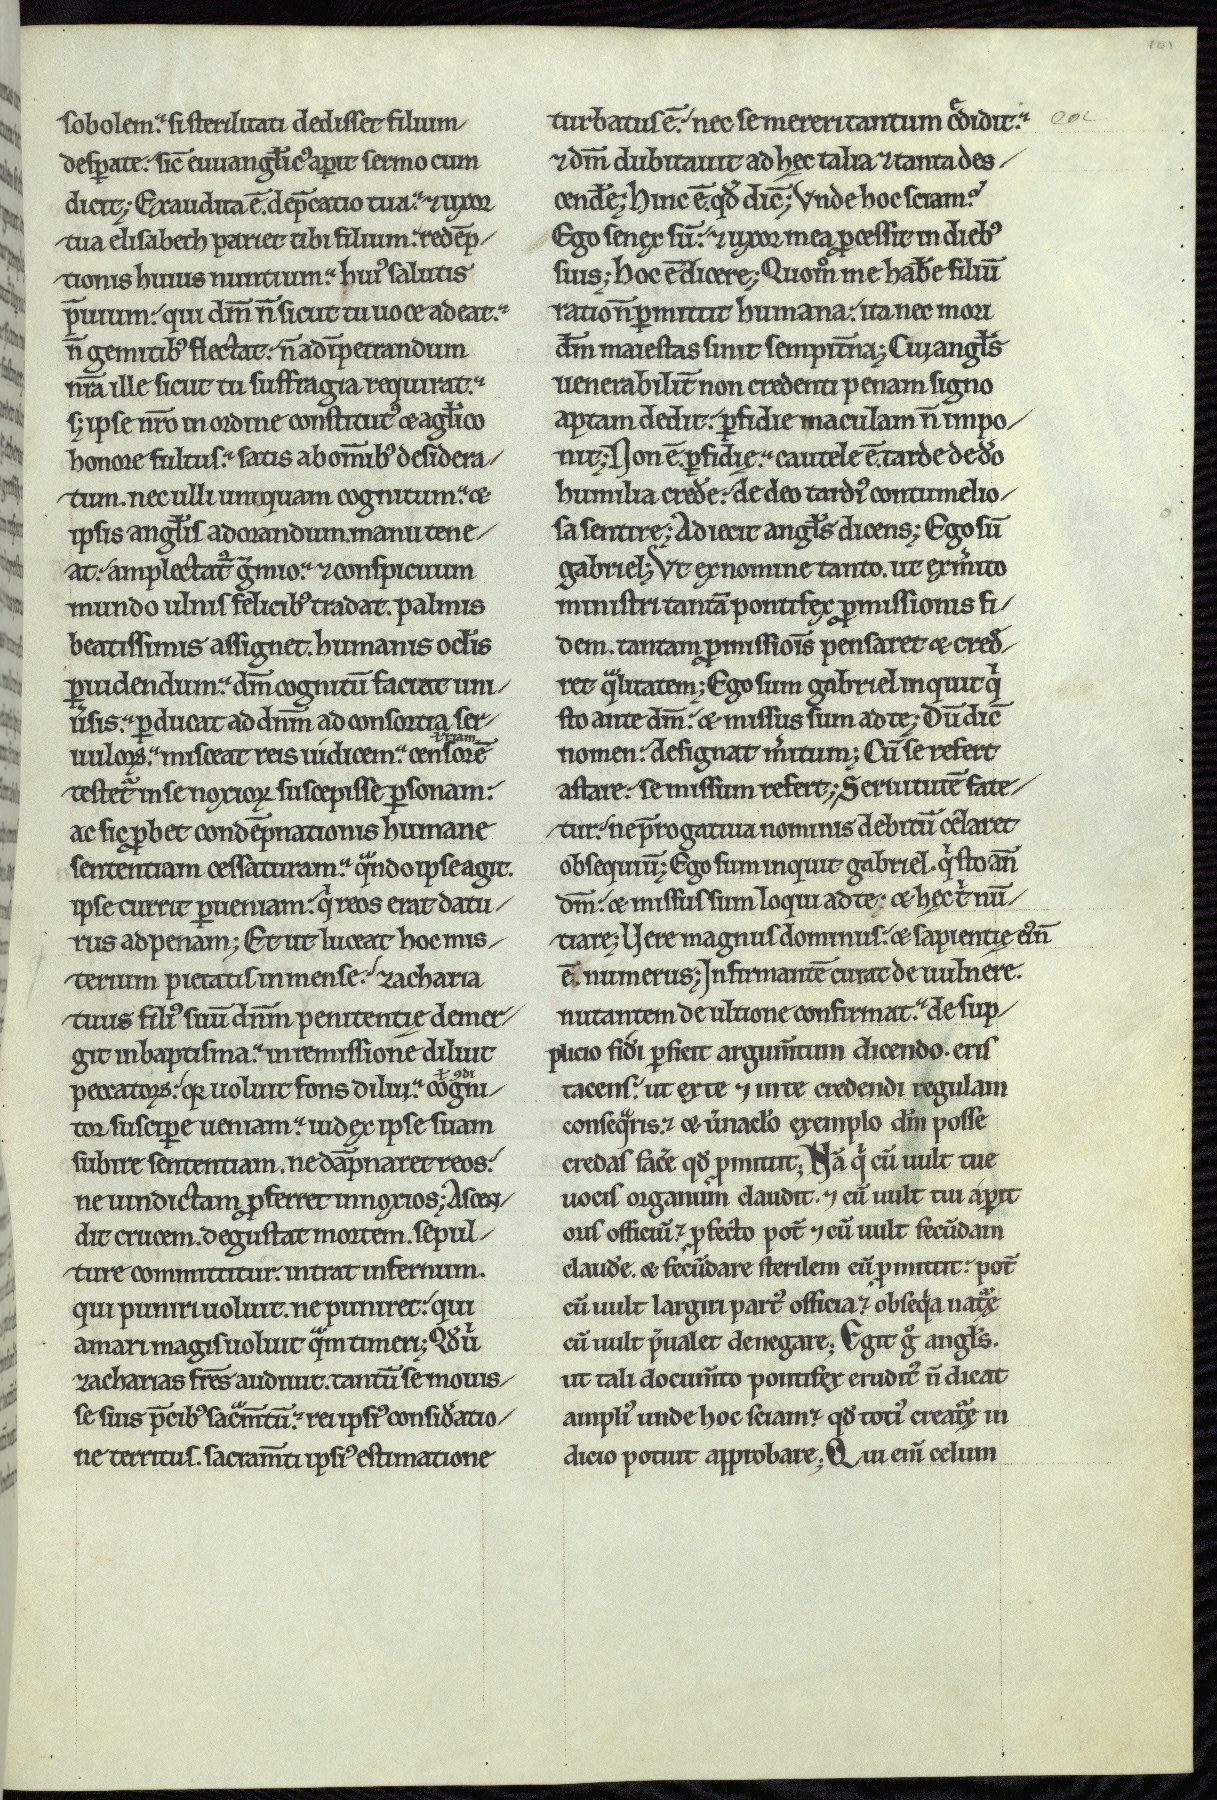 sobolem. si sterilitati dedisset filium
desꝑate. sic̄ euuangłic᷒ aꝑit sermo cum
dicit; Exaudita ē. dep̄catio tua. ⁊ uxor
tua elisabeth pariet tibi filium. redēp
tionis huius nuntium. hui᷒ salutis
p̄uium. qui dm̄ n̄ sicut tu uoce adeat.
n̄ gemitib᷒ flectat. n̄ ad īpetrandum
nr̄a ille sicut tu suffragia requirat.
s; ipse nr̄o in ordine constitut᷒ & agłico
honore fultus. satis ab om̄ib᷒ desidera
tum. nec ulli umquam cognitum. &
ipsis angłis adorandum. manu tene
at. amplectat᷑ g̃mio. ⁊ conspicuum
mundo ulnis felicib᷒ tradat. palmis
beatissimis assignet. humanis ocłis
ꝑuidendum. dm̄ cognitū faciat uni
ūsis. ꝑducat ad dnm̄ ad consortia ser
uuloꝝ. misceat reis uīdicem. censorē
testet᷑ in se noxioꝝ suscepisse ꝑsonam.
ac sic ꝓbet condēpnationis humane
sententiam cessaturam. qͣndo ipse agit.
ipse currit ꝑ ueniam. qͥ reos erat datu
rus ad penam; Et ut luceat hoc mis
terium pietatis in mense. zacharia
tuus fili᷒ suū dnm̄ penitentię demer
git in baptisma. in remissione diluit
peccatoꝝ. qꝛ uoluit fons dilui. cogni
tor suscipe ueniam. iudex ipse suam
subire sententiam. ne dāpnaret reos.
ne uindictam ꝓferret in noxios; Ascen
dit crucem. degustat mortem. sepul
ture committitur. intrat infernum.
qui puniri uoluit. ne puniret. qui
amari magis uoluit qͣm timeri; Qđ ū
zacharias fr̄es audiuit. tantū se mouis
se suis p̄cib᷒ sacm̄tū. rei ipsi᷒ considatio
ne territus. sacram̄ti ipsi᷒ estimatione
turbatus ē. nec se mereri tantum c̄didit.
⁊ dm̄ dubitauit ad hęc talia ⁊ tanta des
cende; hinc ē. qđ dic̄; Vnde hoc sciam.
Ego senex sū. ⁊ uxor mea ꝓcessit in dieb᷒
suis; hoc ē dicere; Quom̊ me habe filiū
ratio n̄ ꝑmittit humana. ita nec mori
dm̄ maiestas sinit sempit̄na; Cui angłs
uenerabilit̄ non credenti penam signo
aptam dedit. ꝑfidie maculam n̄ impo
nit; Non ē. ꝑfidię. cautele ē. tarde de do
humilia crede. de deo tardi᷒ contumelio
sa sentire; Adiecit angłs dicens; Ego sū
gabriel; Vt ex nomine tanto. ut ex m̄ito
ministri tantā pontifex ꝓmissionis fi
dem. tantam ꝓmissioīs pensaret & cred
ret qͣlitatem; Ego sum gabriel inquit qͥ
sto ante dm̄. & missus sum ad te; Dū dic̄
nomen. designat m̄itum; Cū se refert
astare. se missum refert; Seruitutē fate
tur. ne p̄rogatiua nominis debitū celaret
obsequiū; Ego sum inquit gabriel. qͥ sto an̄
dm̄. & missus sum loqui ad te. & hęc tͥ nū
tiare; Vere magnus dominus. & sapientię ei᷒ n̄
ē. numerus; Infirmantē curat de uulnere.
nutantem de ultione confirmat. de sup
plicio fidi ꝑficit argum̄tum dicendo. eris
tacens. ut ex te ⁊ in te credendi regulam
conseqͣris. & ūnaclo exemplo dm̄ posse
credas face qđ ꝓmittit; Nā qͥ cū uult tue
uocis organum̄ claudit. ⁊ cū uult tui aꝑit
oris officiū. ꝓfecto pot̄ ⁊ cū uult fecūdam
claude. & fecūdare sterilem cū ꝓmittit. pot̄
cū uult largiri part᷒ officia. obseqͥa natͣę
cū uult p̄ualet denegare; Egit g̊ angłs.
ut tali docum̄to pontifex erudit᷒ n̄ dicat
ampli᷒ unde hoc sciam. qđ toti᷒ creatͣę in
dicio potuit approbare; Qui em̄ celum